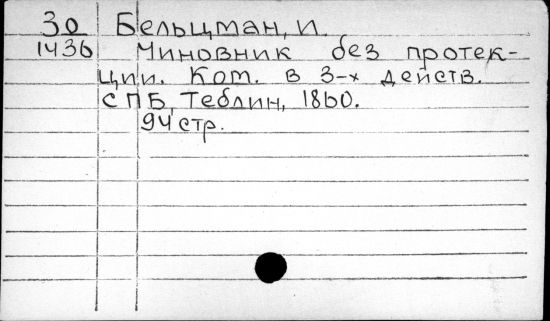 30 Бельцман, И.
1436 Чиновник без протек-
ции. Ком. в 3-х действ.
СПБ, Теблин, 1860.
94 стр.